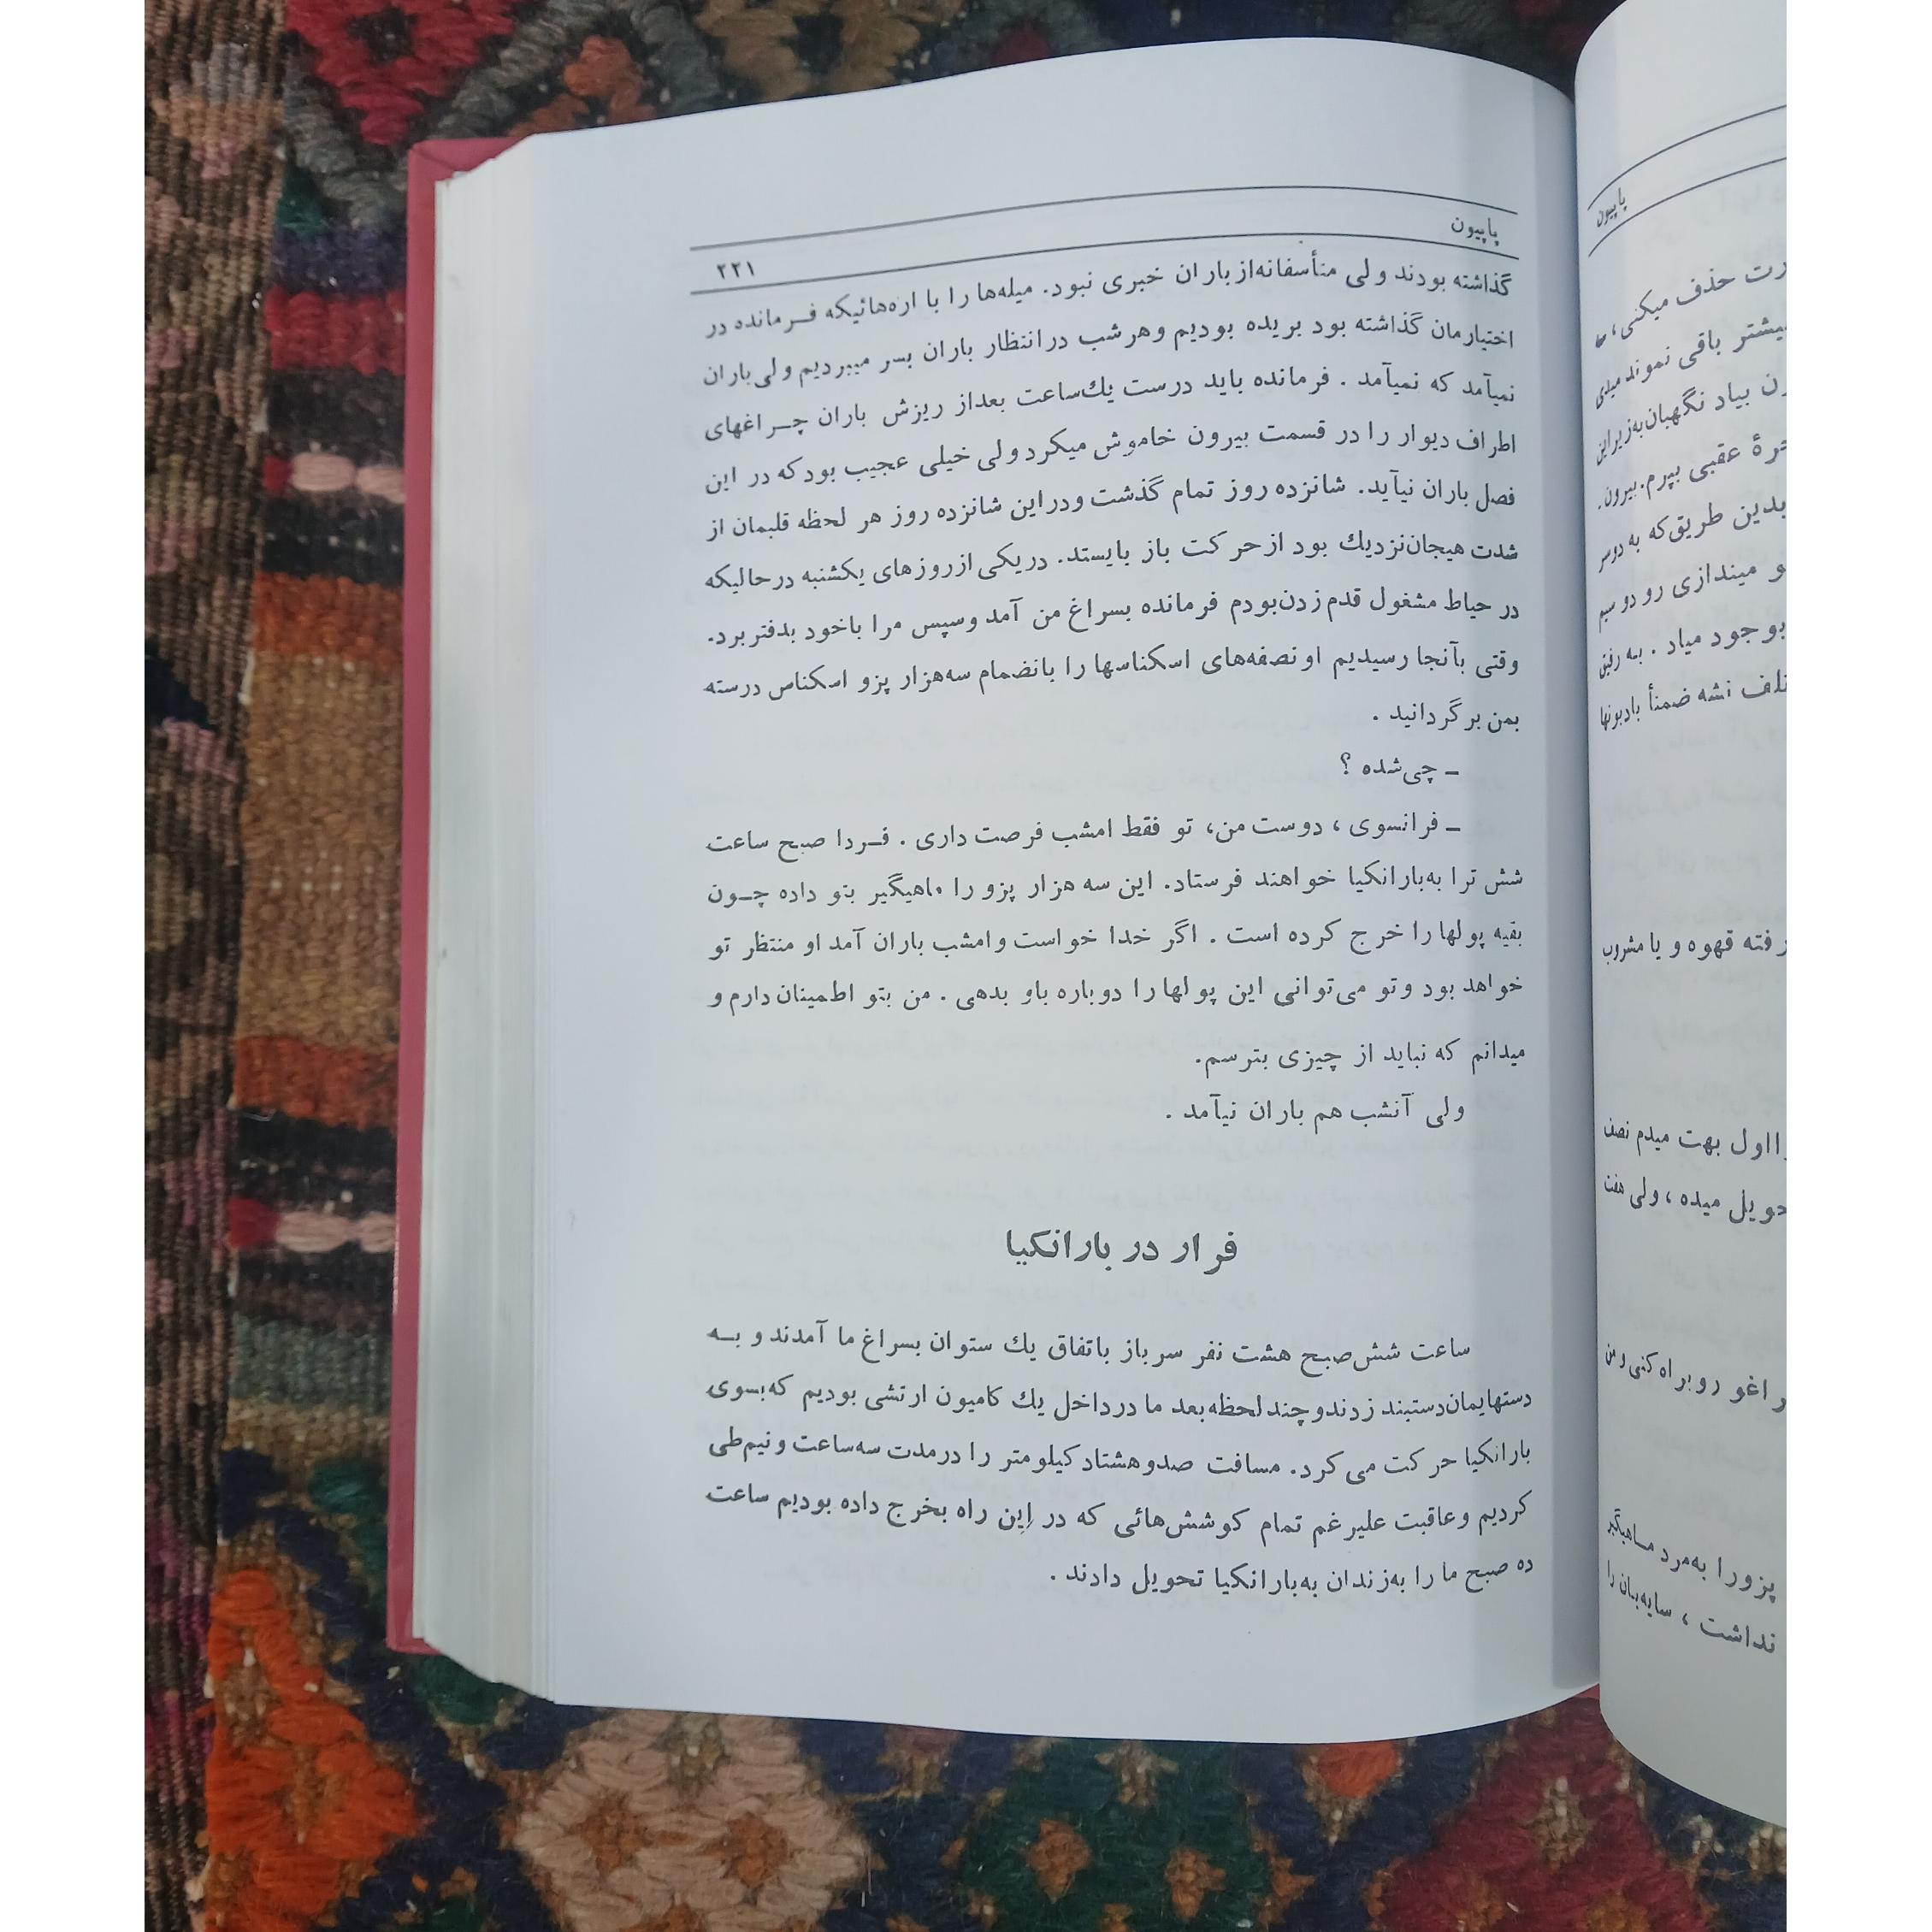 پاپیون
۲۲۱
گذاشته بودند ولی متأسفانه از باران خبری نبود. میله‌ها را با اره‌هائیکه فـرمانده در
اختیارمان گذاشته بود بریده بودیم وهرشب درانتظار باران بسر میبردیم ولی باران
نمیآمد که نمیآمد . فرمانده باید درست یك‌ساعت بعداز ریزش باران چـراغهای
اطراف دیوار را در قسمت بیرون خاموش میکرد ولی خیلی عجیب بودکه در این
فصل باران نیآید. شانزده روز تمام گذشت ودراین شانزده روز هر لحظه قلبمان از
شدت هیجان‌نزدیك بود ازحرکت باز بایستد. دریکی ازروزهای یکشنبه درحالیکه
در حیاط مشغول قدم‌زدن‌بودم فرمانده بسراغ من آمد وسپس مرا باخود بدفتربرد.
وقتی بآنجا رسیدیم او نصفه‌های اسکناسها را بانضمام سه‌هزار پزو اسکناس درسته
بمن برگردانید .
ـ چی‌شده ؟
ـ فرانسوی ، دوست من، تو فقط امشب فرصت داری . فـردا صبح ساعت
شش ترا به‌بارانکیا خواهند فرستاد. این سه هزار پزو را ماهیگیر بتو داده چـون
بقیه پولها را خرج کرده است . اگر خدا خواست وامشب باران آمد او منتظر تو
خواهد بود وتو می‌توانی این پولها را دوباره باو بدهی . من بتو اطمینان دارم و
میدانم که نباید از چیزی بترسم.
ولی آنشب هم باران نیآمد .
فرار در بارانکیا
ساعت شش‌صبح هشت نفر سرباز باتفاق یك ستوان بسراغ ما آمدند و بـه
دستهایمان‌دستبند زدندوچندلحظه‌بعد ما درداخل یك کامیون ارتشی بودیم که‌بسوی
بارانکیا حرکت می‌کرد. مسافت صدوهشتادکیلومتر را درمدت سه‌ساعت ونیم‌طی
کردیم وعاقبت علیرغم تمام کوشش‌هائی که در اِین راه بخرج داده بودیم ساعت
ده صبح ما را به‌زندان به‌بارانکیا تحویل دادند .
پاپیون
حذف میکنی، ما
بیشتر باقی نموند میدی
بیاد نگهبان‌به‌زیراین
عقبی بپرم.بیرون.
بدین طریق‌که به دوسر
میندازی رو دو سیم
بوجود میاد . به رفیق
تلف نشه ضمناً بادبونها
قهوه و یا مشروب
اول بهت میدم نصف
میده ، ولی هفت
روبراه کنی و من
پزورا به‌مرد ماهیگیر
نداشت ، سایه‌بان را